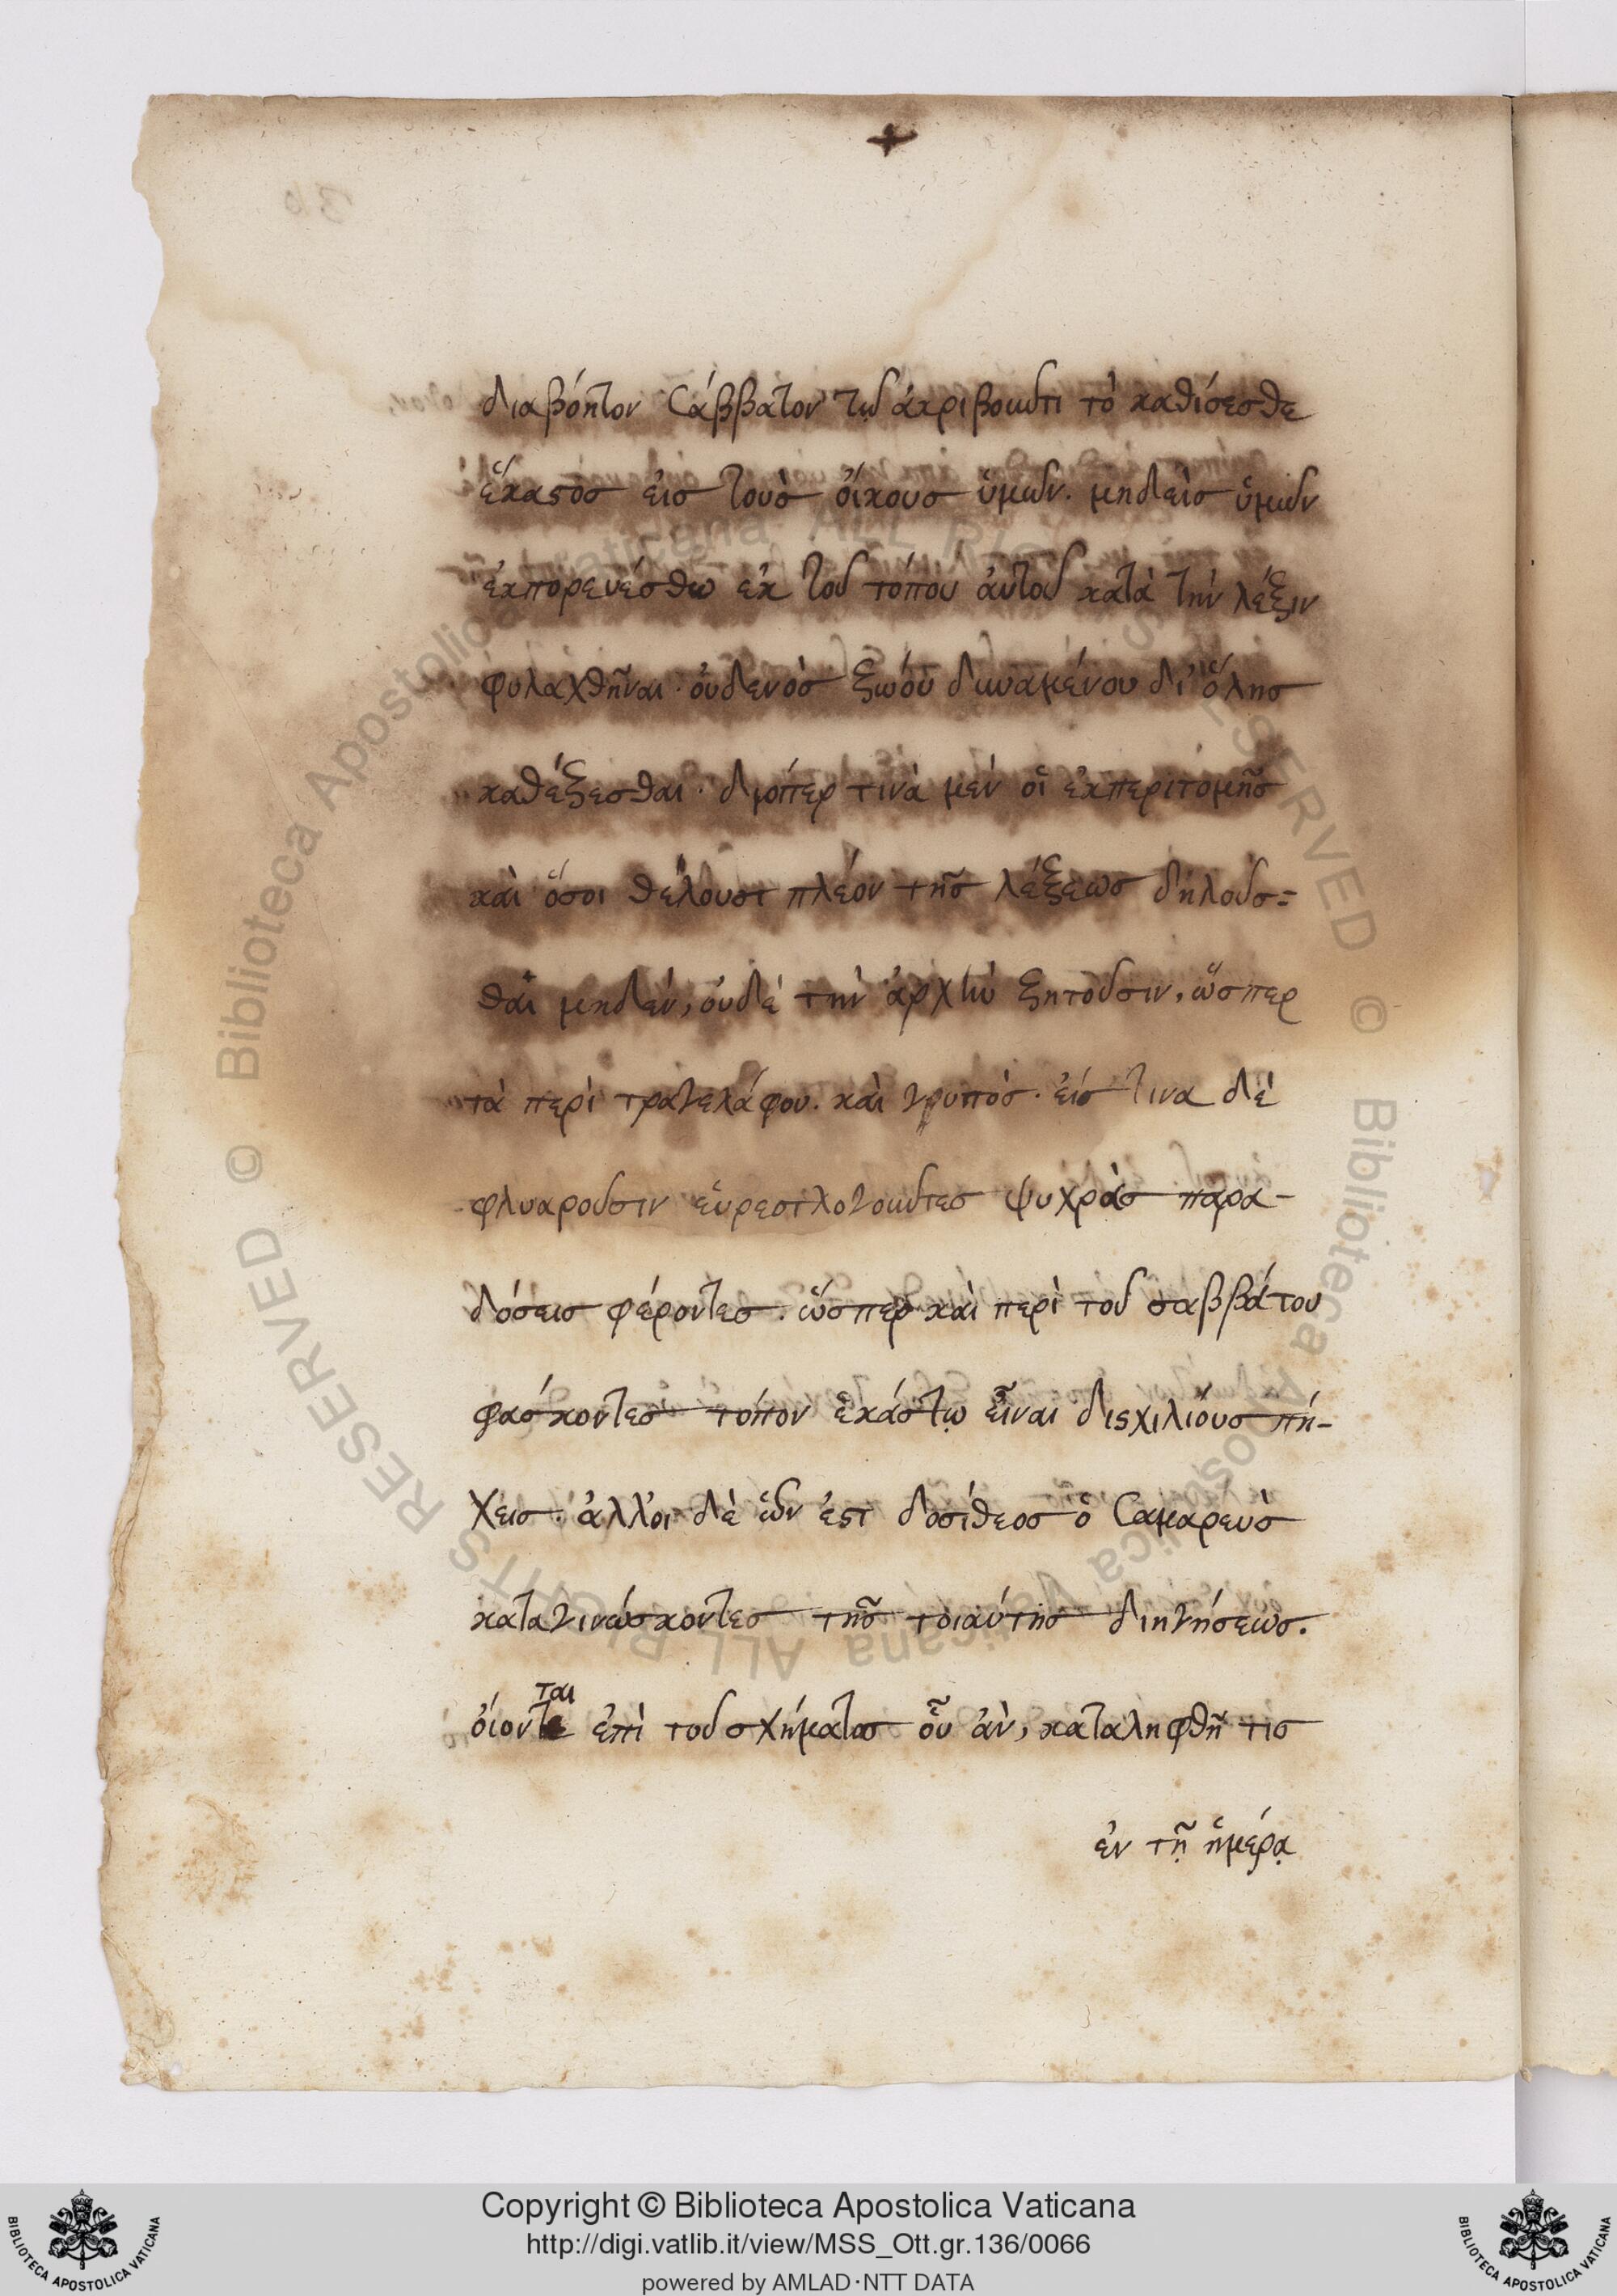 +
διαβόητον Σάββατον τῷ ἀκριβοῦντι τὸ καθίσεσθε
ἕκαστος εἰς τοὺς οἴκους ὑμῶν. μηδεὶς ὑμῶν
ἐκπορευέσθω ἐκ τοῦ τόπου ἀυτοῦ κατὰ τὴν λέξιν
φυλαχθῆναι· οὐδενὸς ζώου δυναμένου δι' ὅλης
καθέζεσθαι· διόπερ τινὰ μὲν οἱ ἐκπεριτομῆς
καὶ ὅσοι θέλουσι πλέον τῆς λέξεως δηλοῦσ=
θαι μηδὲν, οὐδὲ τὴν ἀρχὴν ζητοῦσιν, ὥσπερ
τὰ περὶ τραγελάφου. καὶ γρυπός. εἰς τινα δὲ
φλυαροῦσιν εὑρεσιλογοῦντες ψυχρὰς παρα-
δόσεις φέροντες. ὥσπερ καὶ περὶ τοῦ σαββάτου
φάσκοντες τόπον ἑκάστῳ εἶναι δισχιλίους πή-
χεις· ἄλλοι δὲ ὧν ἐστ δοσίθεος ὁ Σαμαρεὺς
καταγινώσκοντες τῆς τοιαύτης διηγήσεως.
ὀίονται ἐπὶ τοῦ σχήματος οὗ ἀν, καταληφθῇ τις
ἐν τῇ ἡμέρᾳ
Copyright © Biblioteca Apostolica Vaticana
http://digi.vatlib.it/view/MSS_Ott.gr.136/0066
powered by AMLAD·NTT DATA
BIBLIOTECA APOSTOLICA VATICANA
BIBLIOTECA APOSTOLICA VATICANA
© Biblioteca Apostolica Vaticana ALL RIGHTS RESERVED © Biblioteca Apostolica Vaticana ALL RIGHTS RESERVED